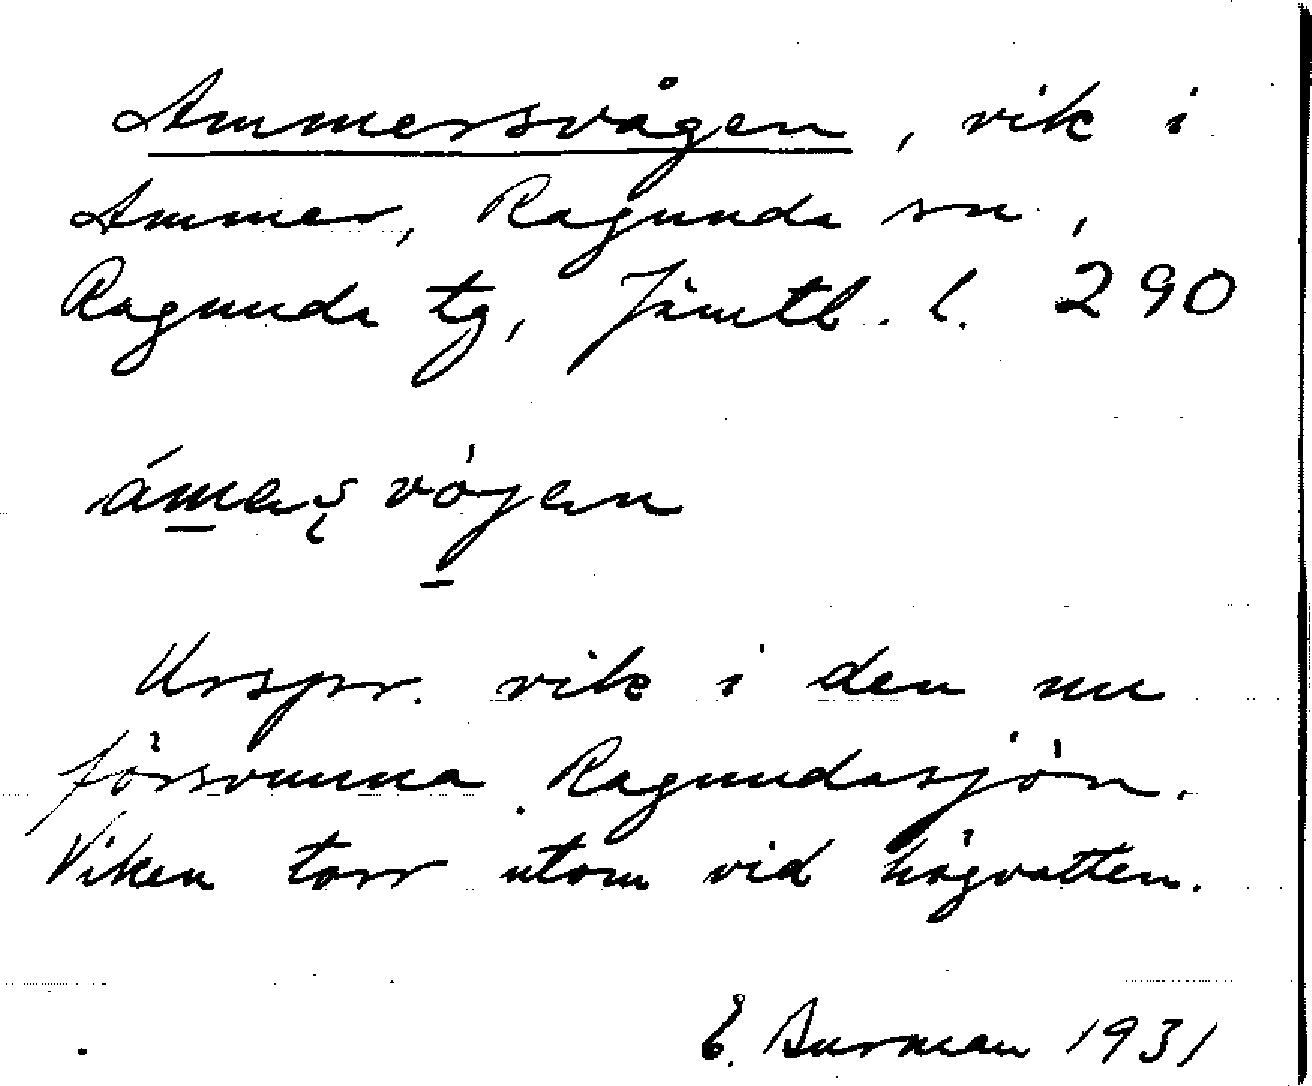 Ammersvågen, vik i
Ammer, Ragunda sn,
Ragunda tg, Jämtl. l. 290
ámeʂ vǿjen
Urspr. vik i den nu
försvunna Ragundasjön.
Viken torr utom vid högvatten.
E. Burman 1931